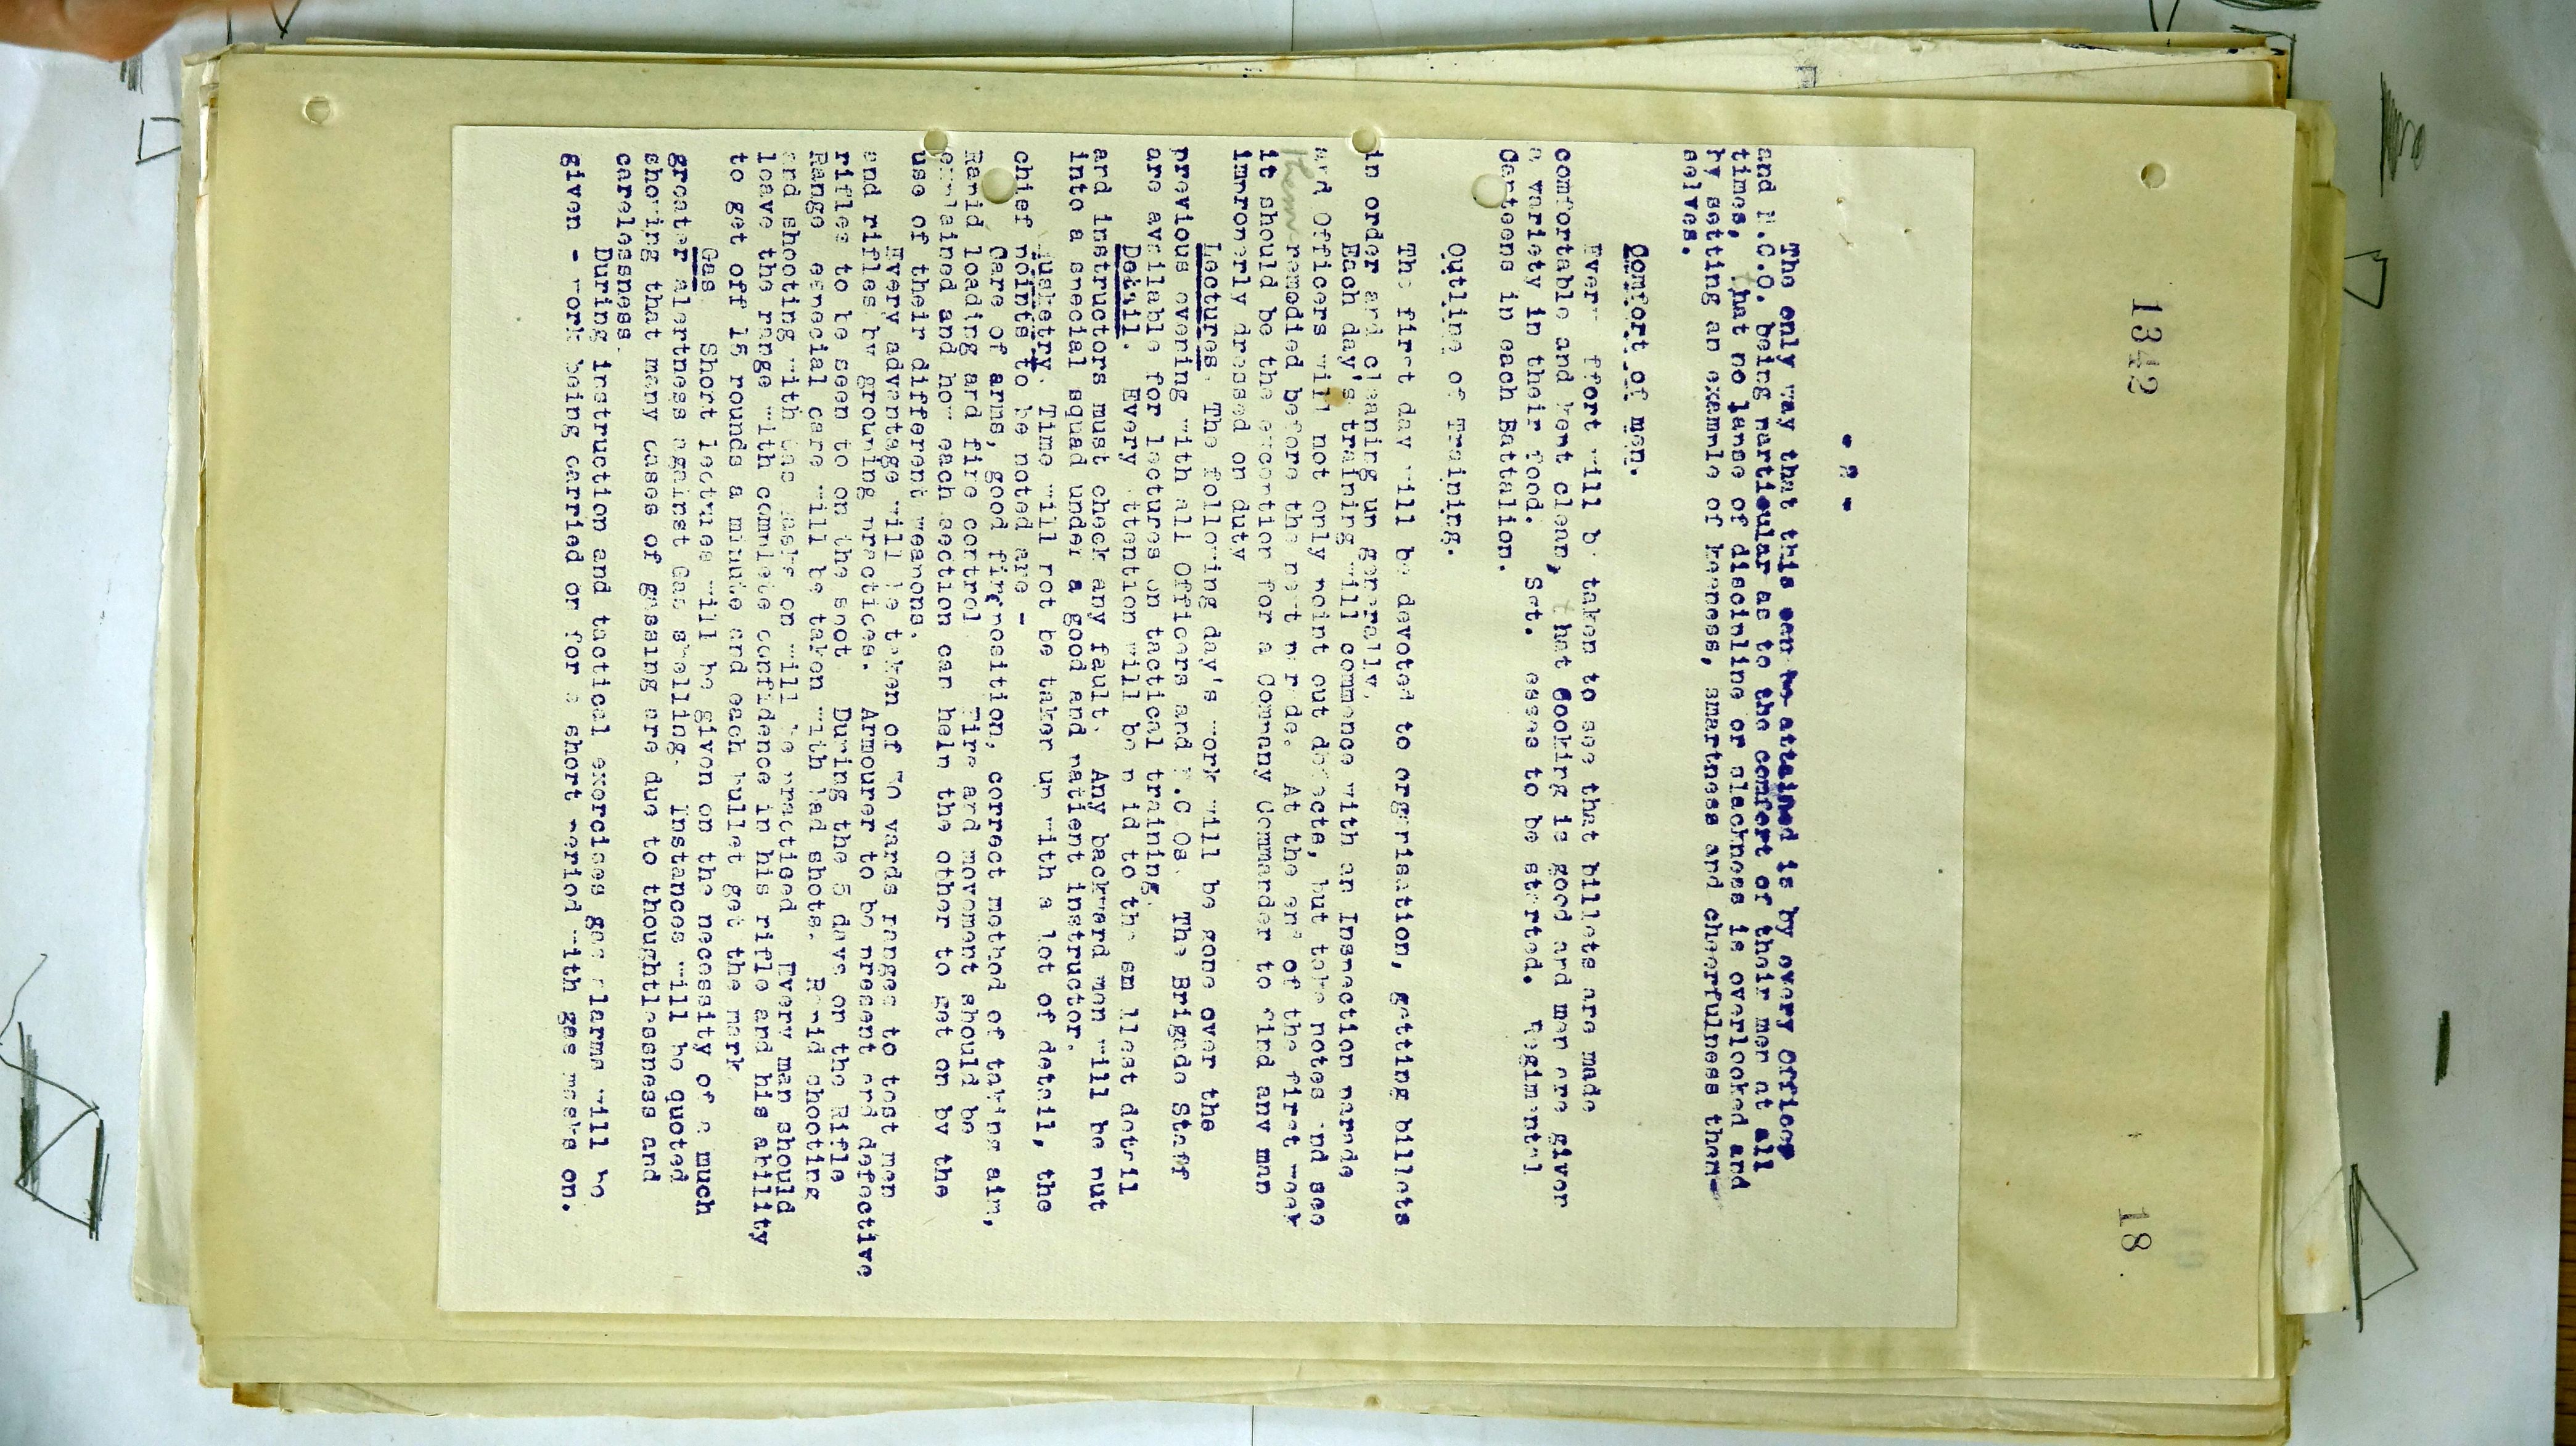 1342
18
- 2 -
The only way that this can be attained is by every Officer
and N.C.O. being particular as to the comfort of their men at all
times, that no lapse of discipline or slackness is overlooked and
by setting an example of keeness, smartness and cheerfulness them-
selves.
Comfort of men.
Every effort will be taken to see that billets are made
comfortable and kept clean, that cooking is good and men are given
a variety in their food. Set. esses to be started. Regimental
Canteens in each Battalion.
Outline of Training.
The first day will be devoted to organisation, getting billets
in order and cleaning up generally.
Each day's training will commence with an Inspection parade
and Officers will not only point out defects, but take notes and see
them remedied before the next parade. At the end of the first week
it should be the exception for a Company Commander to find any man
improperly dressed on duty
Lectures. The following day's work will be gone over the
previous evening with all Officers and N.C.Os. The Brigade Staff
are available for lectures on tactical training.
Detail. Every attention will be paid to the smallest detail
and instructors must check any fault. Any backward men will be put
into a special squad under a good and patient instructor.
Musketry. Time will not be taken up with a lot of detail, the
chief points to be noted are -
Care of arms, good fire position, correct method of taking aim,
Rapid loading and fire control. Fire and movement should be
explained and how each section can help the other to get on by the
use of their different weapons.
Every advantage will be taken of 30 yards ranges to test men
and rifles by grouping practices. Armourer to be present and defective
rifles to be seen to on the spot. During the 5 days on the Rifle
Range especial care will be taken with bad shots. Rapid shooting
and shooting with gas masks on will be practised. Every man should
leave the range with complete confidence in his rifle and his ability
to get off 15 rounds a minute and each bullet get the mark.
Gas. Short lectures will be given on the necessity of a much
greater alertness against Gas shelling. Instances will be quoted
showing that many cases of gassing are due to thoughtlessness and
carelessness.
During instruction and tactical exercises gas alarms will be
given - work being carried on for a short period with gas masks on.